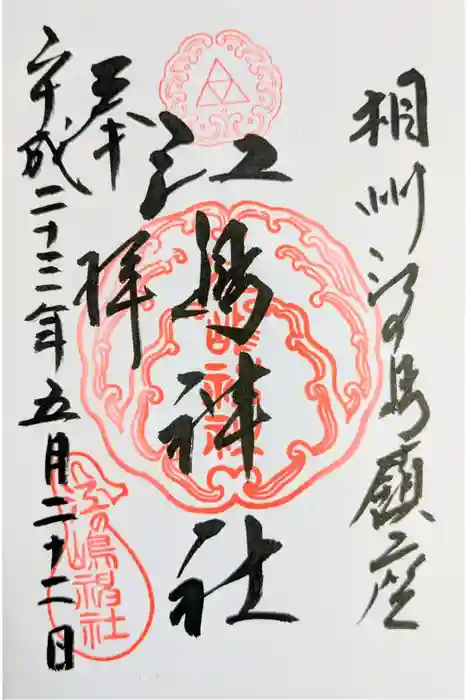 相州江の島鎮座
江島神社
奉拝
平成二十三年五月二十二日
江島神社
江の嶋神社